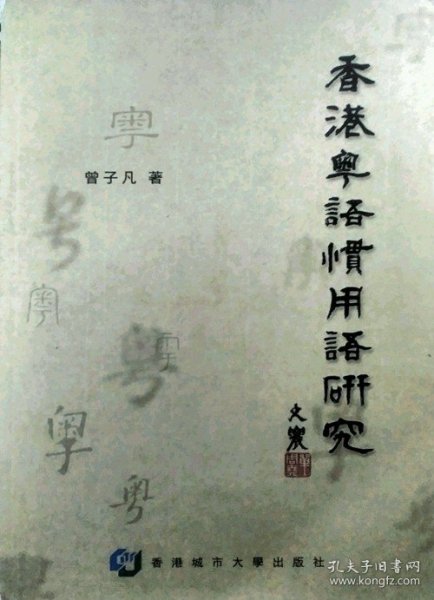 香港粵語慣用語研究
文農
曾子凡 著
粵
粵
粵
粵
粵
香港城市大學出版社
孔夫子旧书网
www.kongfz.com